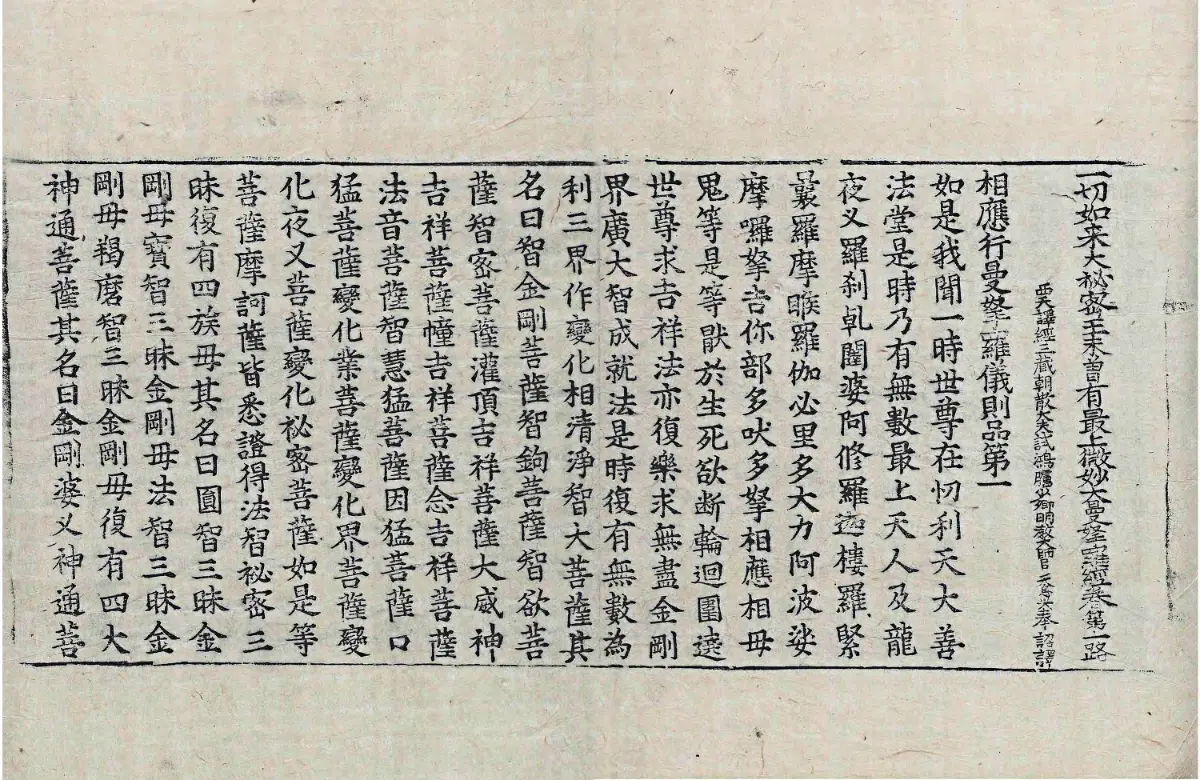 一切如来大秘密王未曾有最上微妙大曼拏羅經卷第一 路
西天譯經三藏朝散大夫試鴻臚少卿明教大師臣天息災奉 詔譯
相應行曼拏羅儀則品第一
如是我聞一時世尊在忉利天大善
法堂是時乃有無數最上天人及龍
夜叉羅刹乹闥婆阿修羅迦樓羅緊
曩羅摩睺羅伽必里多大力阿波娑
摩囉拏吉你部多吠多拏相應相毋
鬼等是等猒於生死欲断輪迴圍遶
世尊求吉祥法亦復樂求無盡金剛
界廣大智成就法是時復有無數為
利三界作變化相清淨智大菩薩其
名曰智金剛菩薩智鉤菩薩智欲菩
薩智密菩薩灌頂吉祥菩薩大威神
吉祥菩薩幢吉祥菩薩念吉祥菩薩
法音菩薩智慧猛菩薩因猛菩薩口
猛菩薩變化業菩薩變化界菩薩變
化夜叉菩薩變化祕密菩薩如是等
菩薩摩訶薩皆悉證得法智祕密三
昧復有四族毋其名曰圓智三昧金
剛毋寶智三昧金剛毋法智三昧金
剛毋羯磨智三昧金剛毋復有四大
神通菩薩其名曰金剛婆叉神通菩